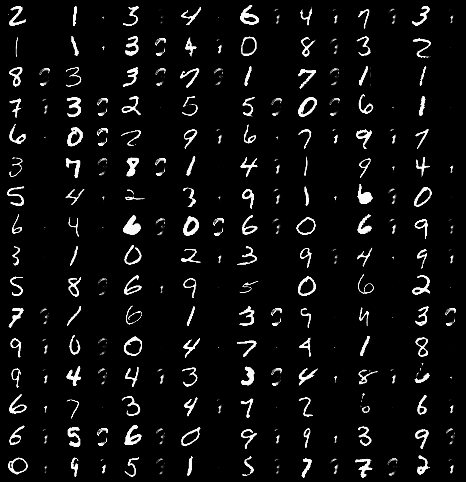 2 1 3 4 6 4 7 3
1 1 3 4 0 8 3 2
8 3 3 7 1 7 1 1
7 3 2 5 5 0 6 1
6 0 2 9 6 7 9 7
3 7 8 1 4 1 9 4
5 4 2 3 9 1 6 0
6 4 6 0 6 0 6 9
3 1 0 2 3 9 4 9
5 8 6 9 5 0 6 2
7 1 6 1 3 9 4 3
9 0 0 4 7 4 1 8
9 4 4 3 3 4 8 6
6 7 3 4 7 2 6 6
6 5 6 0 9 9 3 9
0 9 5 1 5 7 7 2